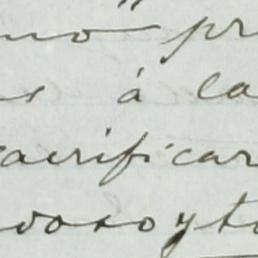 mo" pr
s á la
sacrificar
doso y to